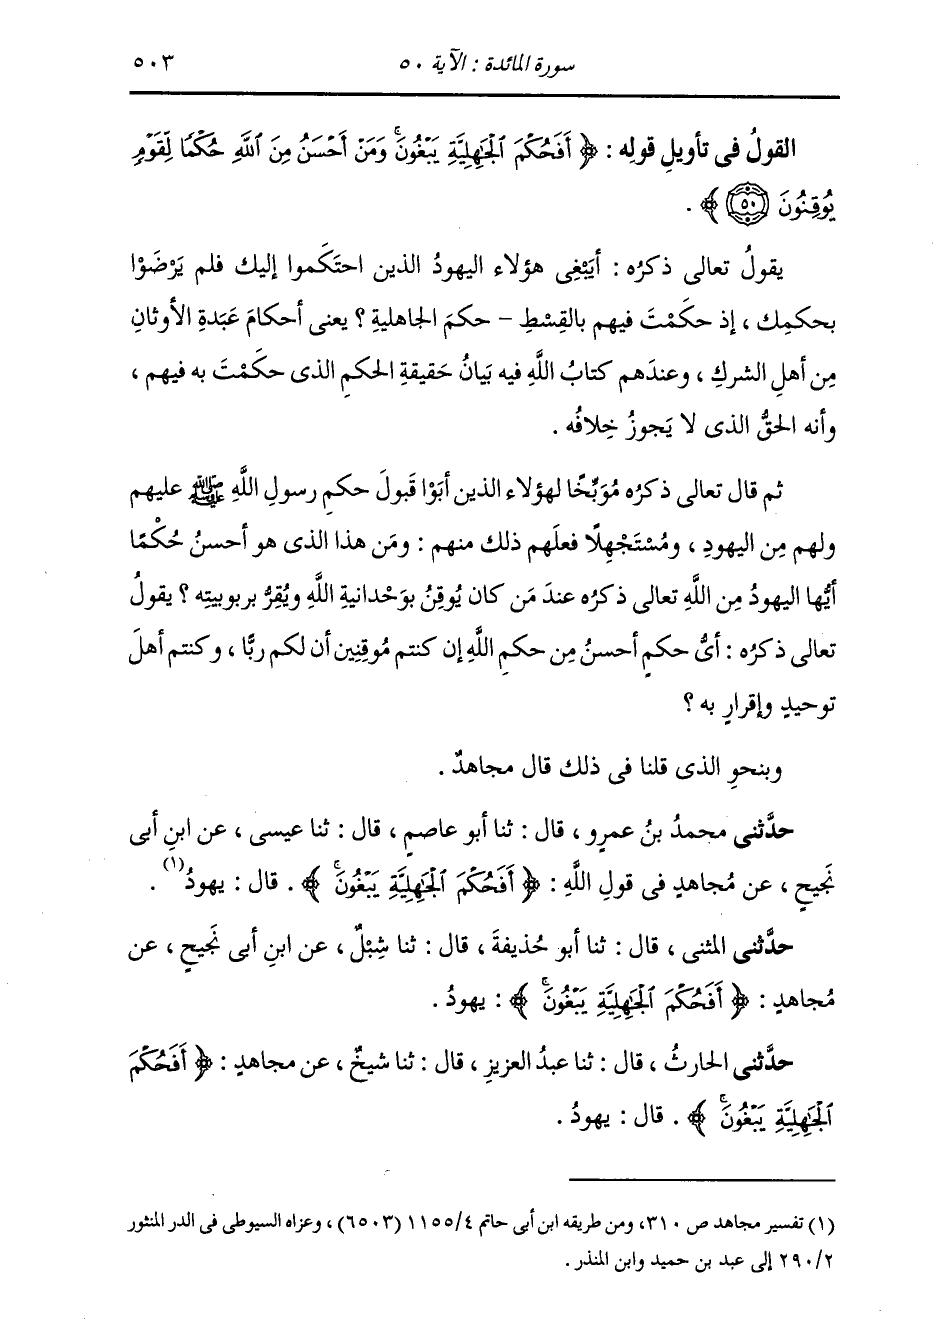 سورة المائدة : الآية ٥٠ ٥٠٣
القولُ فى تأويلِ قولِه : ﴿ أَفَحُكْمَ ٱلْجَٰهِلِيَّةِ يَبْغُونَۚ وَمَنْ أَحْسَنُ مِنَ ٱللَّهِ حُكْمًا لِّقَوْمٍ
يُوقِنُونَ ﴿٥٠﴾ ﴾ .
يقولُ تعالى ذكرُه : أيَبْغِى هؤلاء اليهودُ الذين احتَكَموا إليك فلم يَرْضَوْا
بحكمِك ، إذ حكَمْتَ فيهم بالقِسْطِ – حكمَ الجاهليةِ ؟ يعنى أحكامَ عَبَدةِ الأوثانِ
مِن أهلِ الشركِ ، وعندَهم كتابُ اللَّهِ فيه بَيَانُ حَقيقةِ الحكمِ الذى حكَمْتَ به فيهم ،
وأنه الحقُّ الذى لا يَجوزُ خِلافُه .
ثم قال تعالى ذكرُه مُوَبِّخًا لهؤلاء الذين أبَوْا قَبولَ حكمِ رسولِ اللَّهِ ﷺ عليهم
ولهم مِن اليهودِ ، ومُسْتَجْهِلًا فعلَهم ذلك منهم : ومَن هذا الذى هو أحسنُ حُكْمًا
أيُّها اليهودُ مِن اللَّهِ تعالى ذكرُه عندَ مَن كان يُوقِنُ بوَحْدانيةِ اللَّهِ ويُقِرُّ بربوبيتِه ؟ يقولُ
تعالى ذكرُه : أىُّ حكمٍ أحسنُ مِن حكمِ اللَّهِ إن كنتم مُوقِنِين أن لكم ربًّا ، وكنتم أهلَ
توحيدٍ وإقرارٍ به ؟
وبنحوِ الذى قلنا فى ذلك قال مجاهدٌ .
حدَّثنى محمدُ بنُ عمرٍو ، قال : ثنا أبو عاصمٍ ، قال : ثنا عيسى ، عن ابنِ أبى
نَجيحٍ ، عن مُجاهدٍ فى قولِ اللَّهِ : ﴿ أَفَحُكْمَ ٱلْجَٰهِلِيَّةِ يَبْغُونَۚ ﴾ . قال : يهودُ(١) .
حدَّثنى المثنى ، قال : ثنا أبو حُذيفةَ ، قال : ثنا شِبْلٌ ، عن ابنِ أبى نَجيحٍ ، عن
مُجاهدٍ : ﴿ أَفَحُكْمَ ٱلْجَٰهِلِيَّةِ يَبْغُونَۚ ﴾ : يهودُ .
حدَّثنى الحارثُ ، قال : ثنا عبدُ العزيزِ ، قال : ثنا شيخٌ ، عن مجاهدٍ : ﴿ أَفَحُكْمَ
ٱلْجَٰهِلِيَّةِ يَبْغُونَۚ ﴾ . قال : يهودُ .
(١) تفسير مجاهد ص ٣١٠، ومن طريقه ابن أبى حاتم ١١٥٥/٤ (٦٥٠٣) ، وعزاه السيوطى فى الدر المنثور
٢٩٠/٢ إلى عبد بن حميد وابن المنذر .